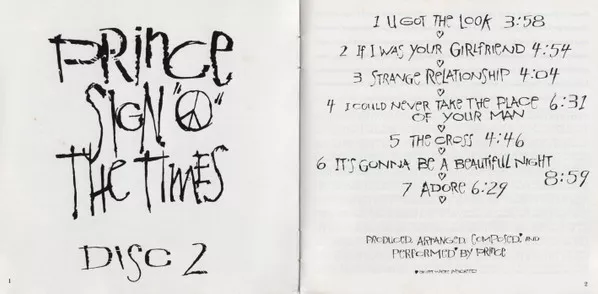 PRINCE
SIGN "☮"
THE TIMES
DISC 2
1
1 U GOT THE LOOK 3:58
♡
2 IF I WAS YOUR GIRLFRIEND 4:54
♡
3 STRANGE RELATIONSHIP 4:04
♡
4 I COULD NEVER TAKE THE PLACE 6:31
OF YOUR MAN
♡
5 THE CROSS 4:46
♡
6 IT'S GONNA BE A BEAUTIFUL NIGHT
8:59
♡
7 ADORE 6:29
♡
PRODUCED, ARRANGED, COMPOSED, AND
PERFORMED BY PRINCE
2